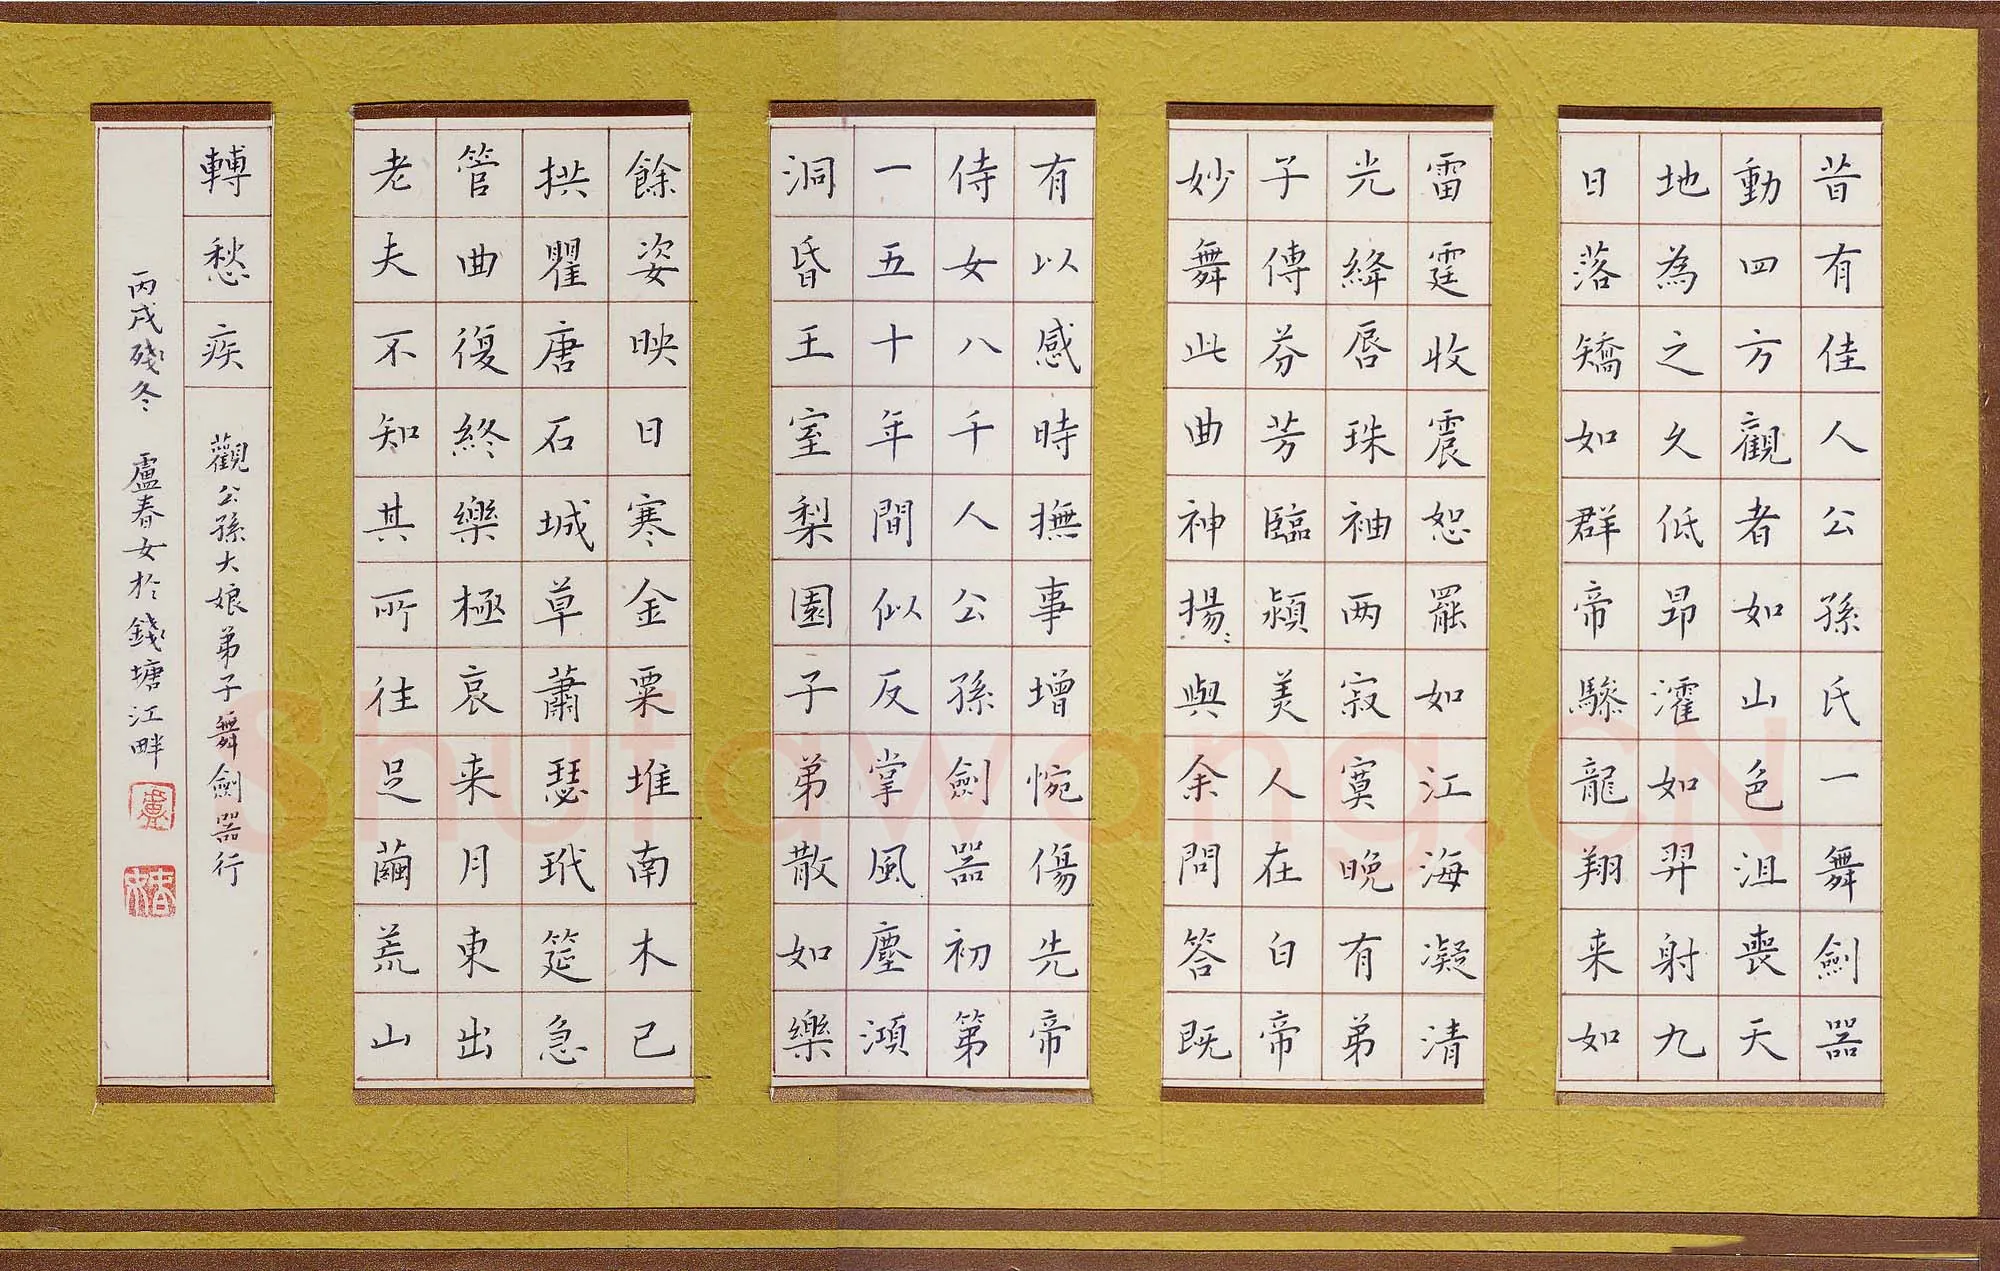 昔有佳人公孫氏一舞劍器
動四方觀者如山色沮喪天
地為之久低昂㸌如羿射九
日落矯如群帝驂龍翔来如
雷霆收震怒罷如江海凝清
光絳唇珠袖两寂寞晚有弟
子傳芬芳臨潁美人在白帝
妙舞此曲神揚〻與余問答既
有以感時撫事增惋傷先帝
侍女八千人公孫劍器初第
一五十年間似反掌風塵澒
洞昏王室梨園子弟散如樂
餘姿映日寒金粟堆南木已
拱瞿唐石城草蕭瑟玳筵急
管曲復終樂極哀来月東出
老夫不知其所往足繭荒山
轉愁疾
觀公孫大娘弟子舞劍器行
丙戌殘冬 盧春女於錢塘江畔
Shufawang.CN